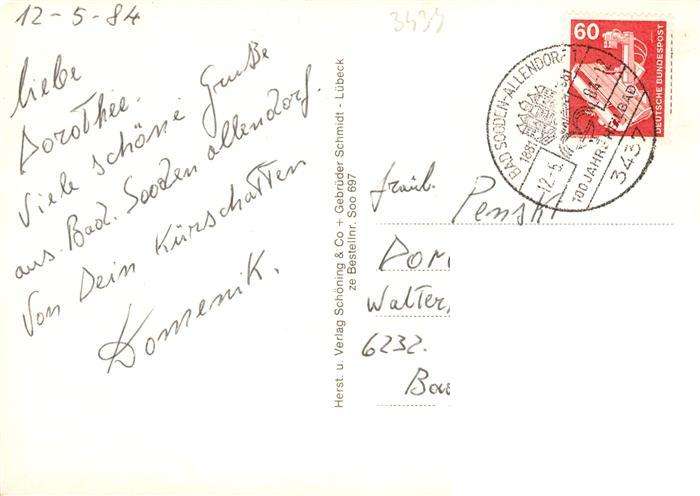 12-5-84
3437
liebe
Dorothee.
Viele schöne Grüße
aus Bad. Sooden allendorf.
Von Dein Kürschatten
Domenik.
Herst. u. Verlag Schöning & Co + Gebrüder Schmidt - Lübeck
ze Bestellnr. Soo 697
60
DEUTSCHE BUNDESPOST
BAD SOODEN-ALLENDORF
1881
100 JAHRE HEILBAD
3437
fräul.
Penski
DOM
Walter,
6232.
Bad